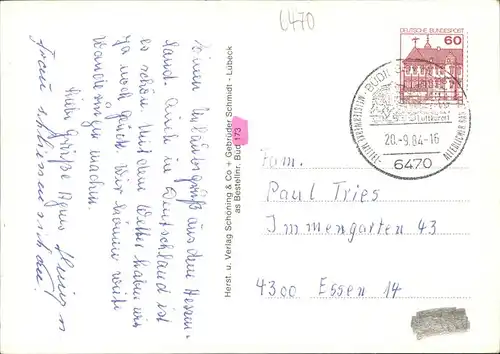 6470
DEUTSCHE BUNDESPOST
60
BÜDINGEN
20.-9.84-16
6470
Einen Urlaubsgruß aus dem Hessen-
land. Auch in Deutschland ist
es schön. Mit dem Wetter haben wir
ja noch Glück. Wir können weite
Wanderungen machen.
Viele Grüße Agnes
Herst. u. Verlag Schöning & Co + Gebrüder Schmidt - Lübeck
as Bestellnr. Bud 173
Fam.
Paul Tries
Immengarten 43
4300 Essen 14